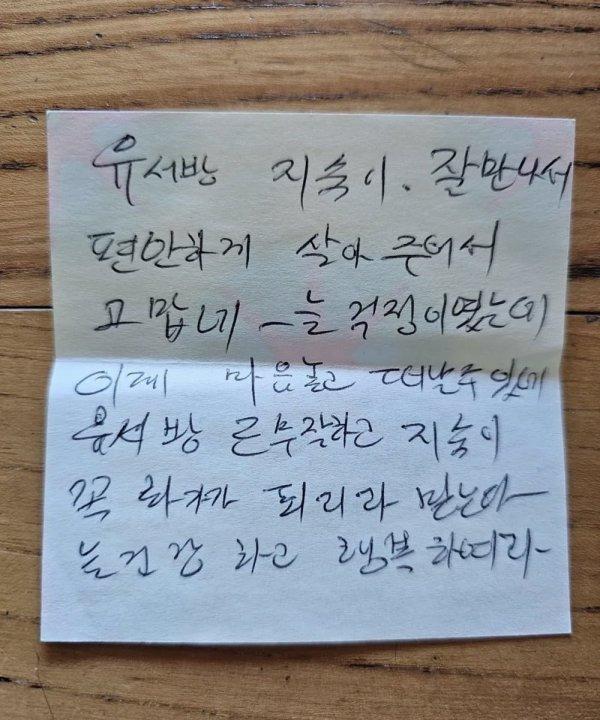 유서방 지숙이. 잘만나서
편안하게 살아 주어서
고맙네 늘 걱정이였는데
이제 마음놓고 떠날수있네
유서방 은무작하고 지숙이
꼭 화가가 되리라 믿는다
늘건강 하고 행복하여라